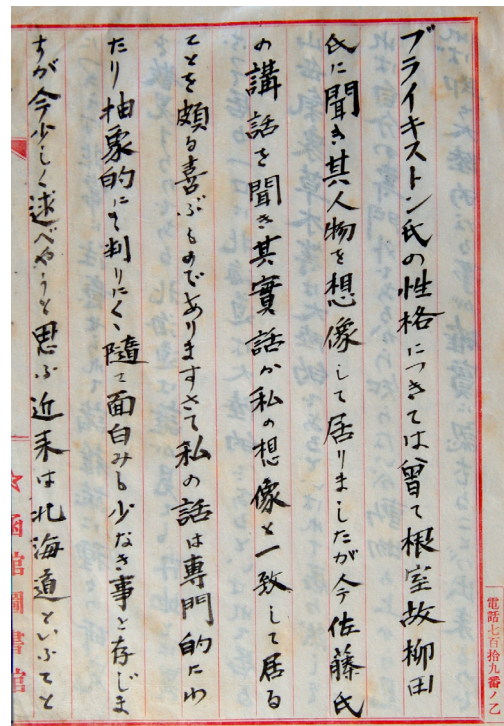 ブライキストン氏の性格につきては曾て根室故柳田
氏に聞き其人物を想像して居りましたが今佐藤氏
の講話を聞き其實話が私の想像と一致して居る
ことを頗る喜ぶものでありますさて私の話は専門的にわ
たり抽象的にて判りにくゝ随て面白みも少なき事と存じま
すが今少しく述べやうと思ふ近来は北海道といふこと
函館圖書館
電話七百拾九番ノ乙